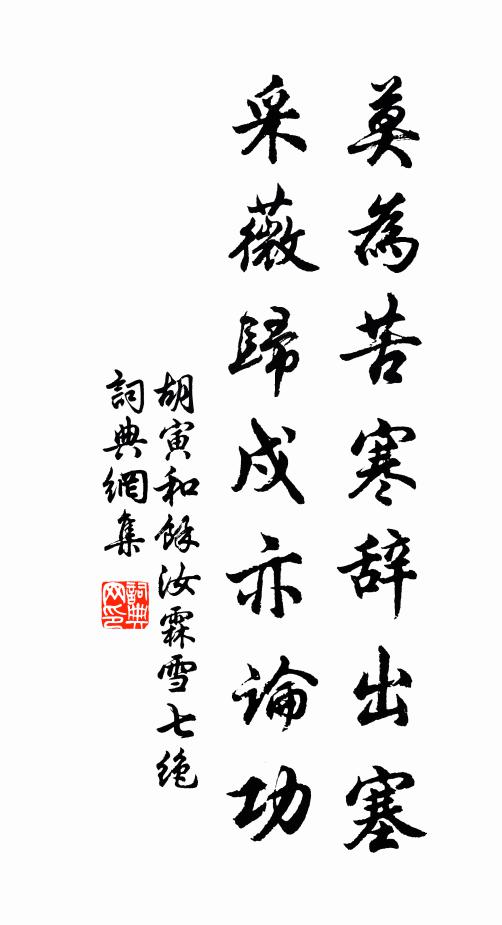 莫為苦寒辞出塞
采薇歸戍亦論功
胡寅和餘汝霖雪七絶
詞典網集
詞典
网印